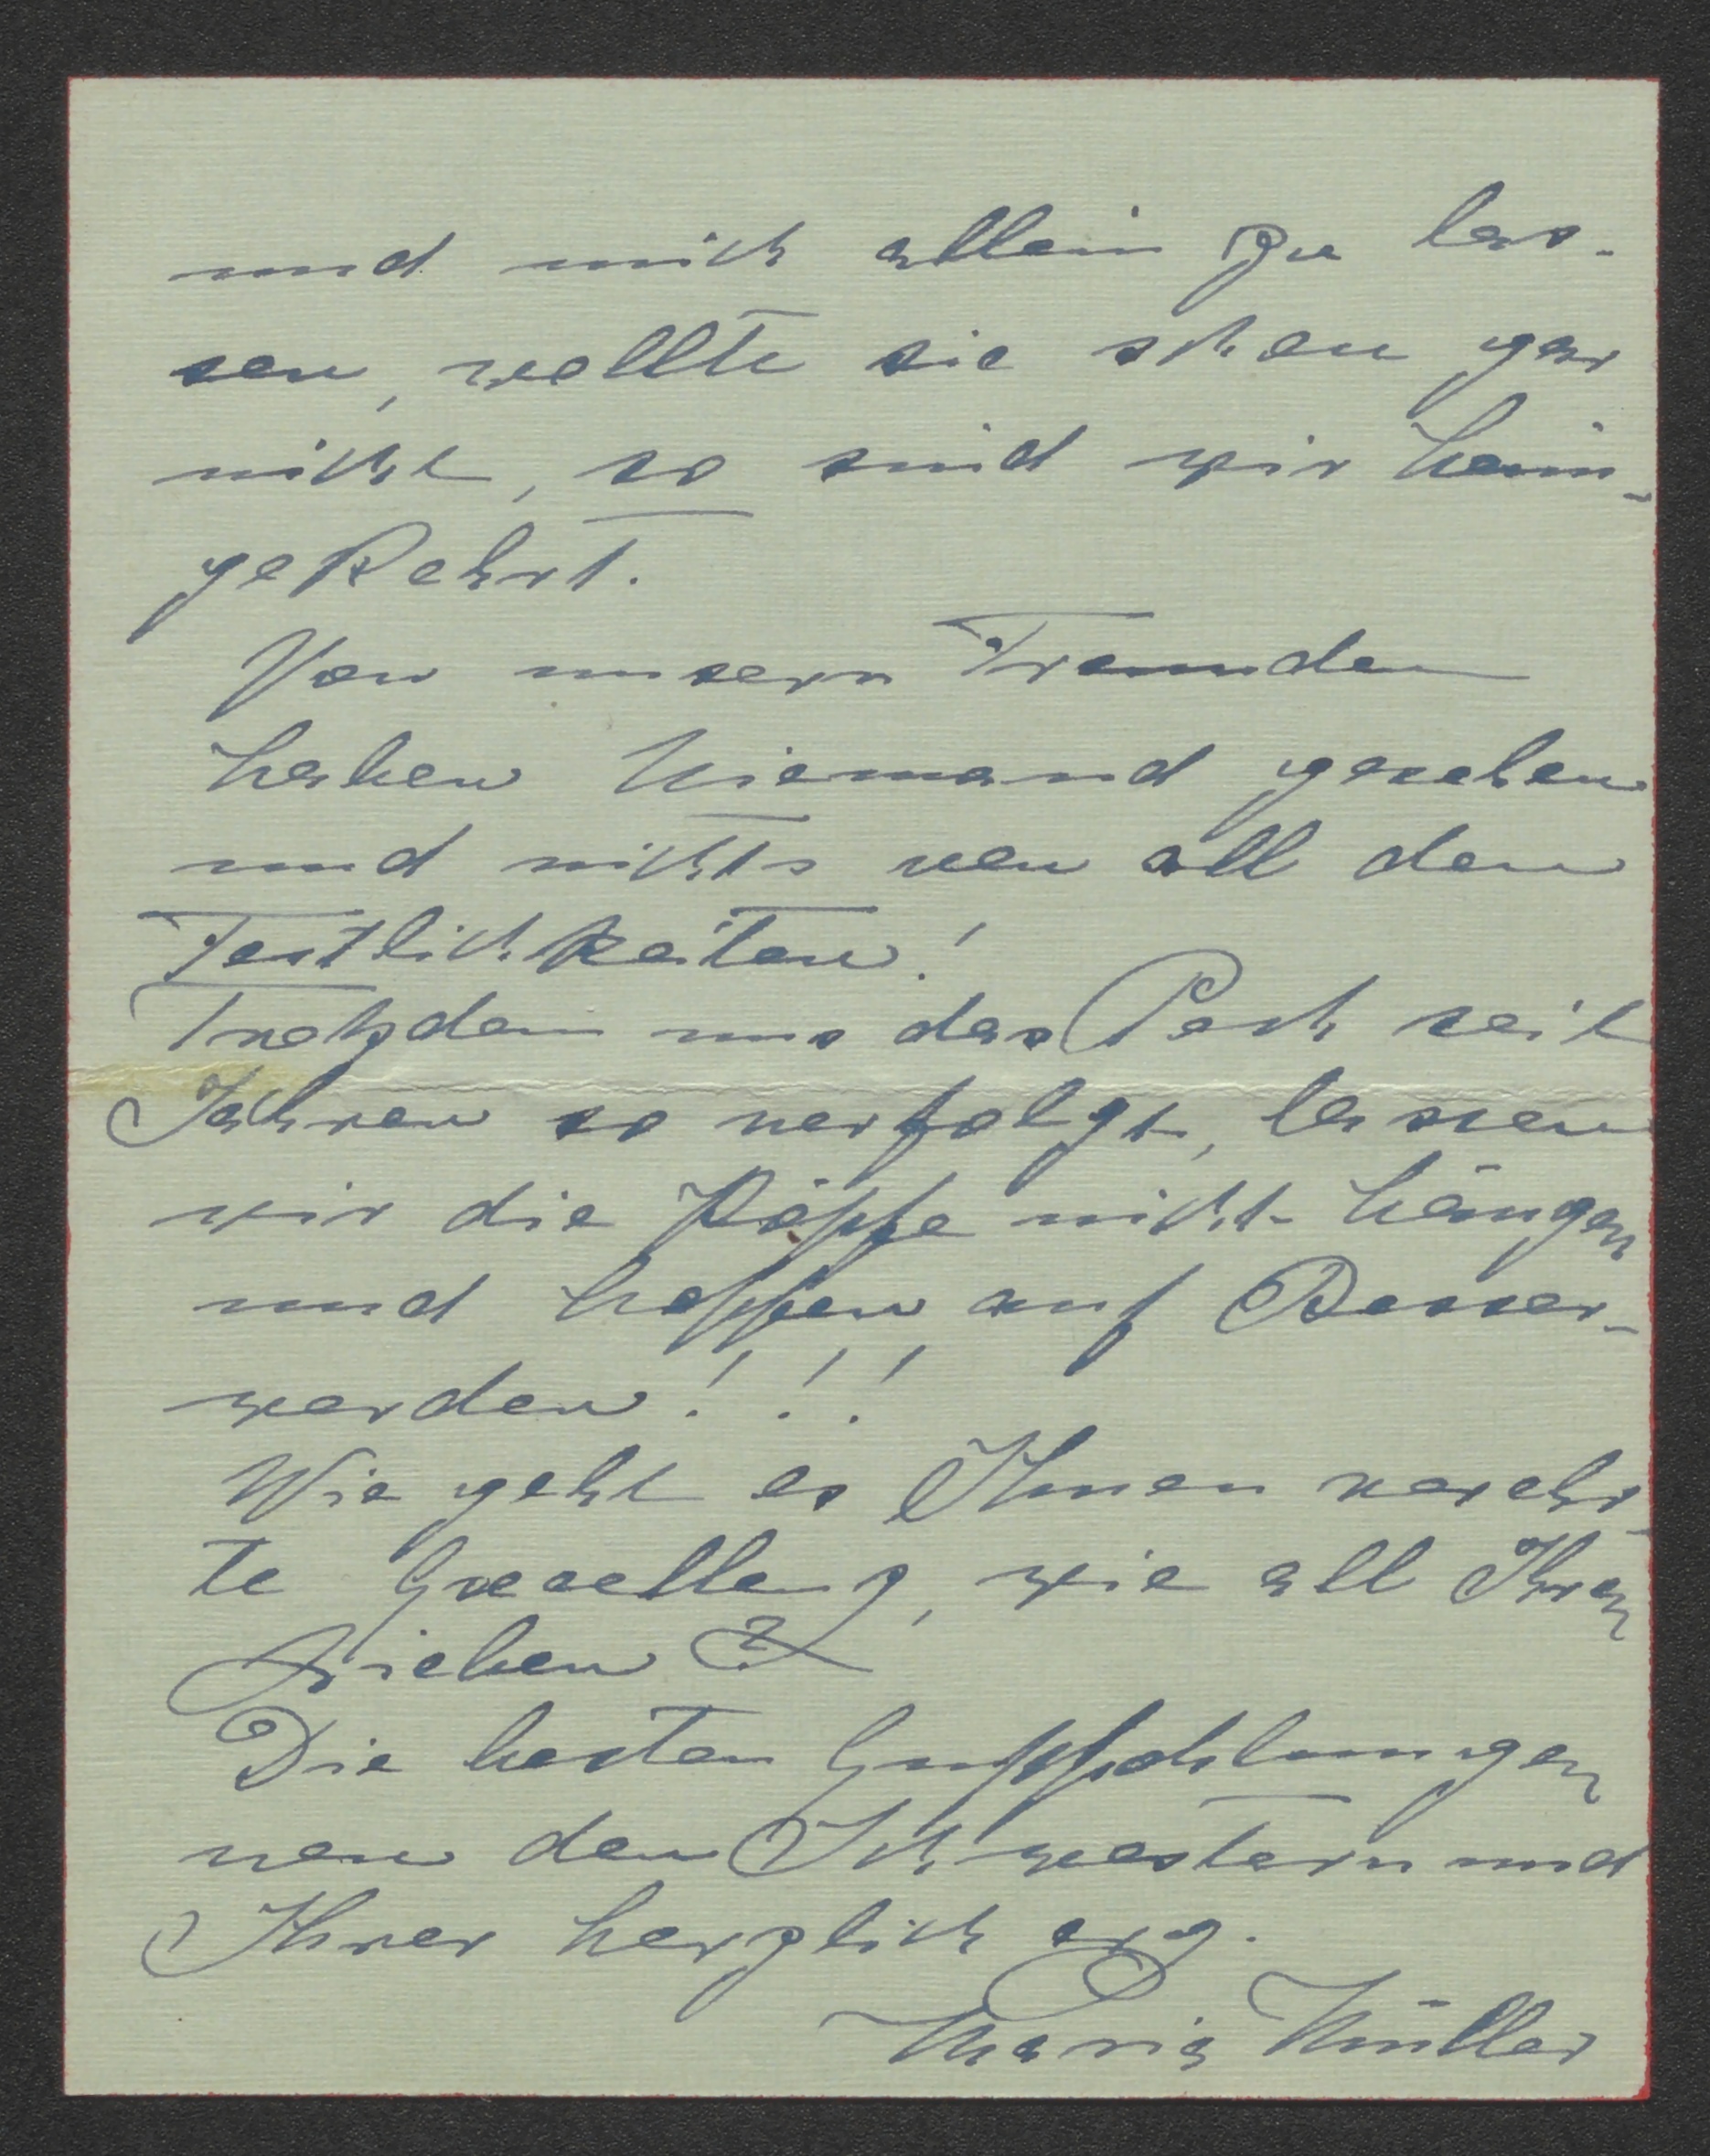 und mich allein zu las-
sen, wollte sie schon gar
nicht, so sind wir heim-
gekehrt.
Von unsern Freunden
haben Niemand gesehen
und nichts von all den
Festlichkeiten!
Trotzdem uns das Pech seit
Jahren so verfolgt, lassen
wir die Köpfe nicht hängen
und hoffen auf Besser-
werden!!!
Wie geht es Ihnen verehr-
te Exzellenz, wie all Ihren
Lieben?
Die besten Empfehlungen
von den Schwestern und
Ihrer herzlich erg.
Maria Müller